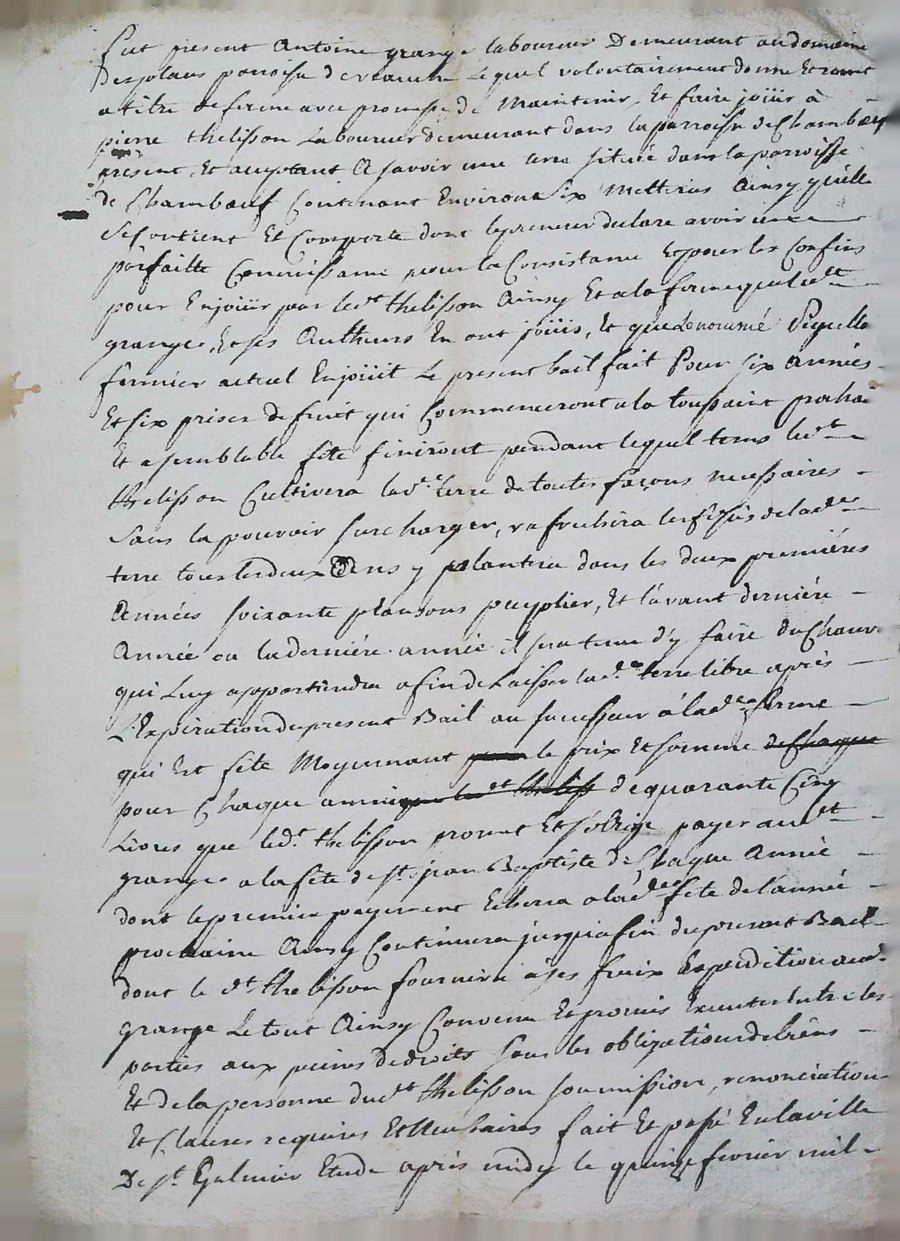 fut present Antoine grange laboureur Demeurant au domaine
Desplaus paroisse de lequel volontairement donne Et remet
a titre de ferme avec promesse de Maintenir, Et faire joüir à
pierre thelisson Laboureur demeurant dans la parroisse de Chambœuf
présent, Et acceptant A savoir une terre située dans la parroisse
de Chambœuf Contenant Environ six Metterées Ainsy qu'elle
se Contient Et Comporte dont le preneur declare avoir une
parfaitte Connoissance pour la Consistance Et pour les Confins
pour En joüir par led.t thelisson Ainsy Et a la forme que led.t
grange, Et ses Autheurs En ont joüis, Et que Honnoré
fermier actuel En joüit Le present bail fait Pour six Années
Et six prises de fruit qui Commenceront a la toussaint prochai
Et a semblable fête finiront pendant lequel tems led.t
thelisson Cultivera lad.e terre de toutes façons necessaires
sans la pouvoir surcharger, rafrechira les fossés de lad.e
terre tous les deux Ans y plantera dans les deux premières
Années soixante plansons peuplier, Et l'avant dernière
Année ou la dernière année il sera tenu d'y faire du Chanv
qui Luy appartiendra afin de Laisser lad.e terre libre après
L'Expiration du present Bail au successeur à lad.e ferme
qui Est fête Moyennant le prix Et somme de Chaque
pour Chaque année que led.t theliss de quarante Cinq
Livres que led.t thelisson promet Et s'oblige payer aud.t
grange a la fête de st. jean Baptiste de Chaque Année
dont le premier payement Echerra a lad.e fête de l'année
prochaine Ainsy Continuera jusqu'a fin du present Bail
dont le d.t thelisson fournira à ses fraix Expedition aud.
grange Le tout Ainsy Convenu Et promis Executer Entre les
parties aux peines de droits sous les obligations de biens
Et de la personne dud.t thelisson soumission, renonciation
Et Clauses requises Et Necessaires fait Et passé En la ville
De st. Galmier Etude après midy le quinze fevrier mil